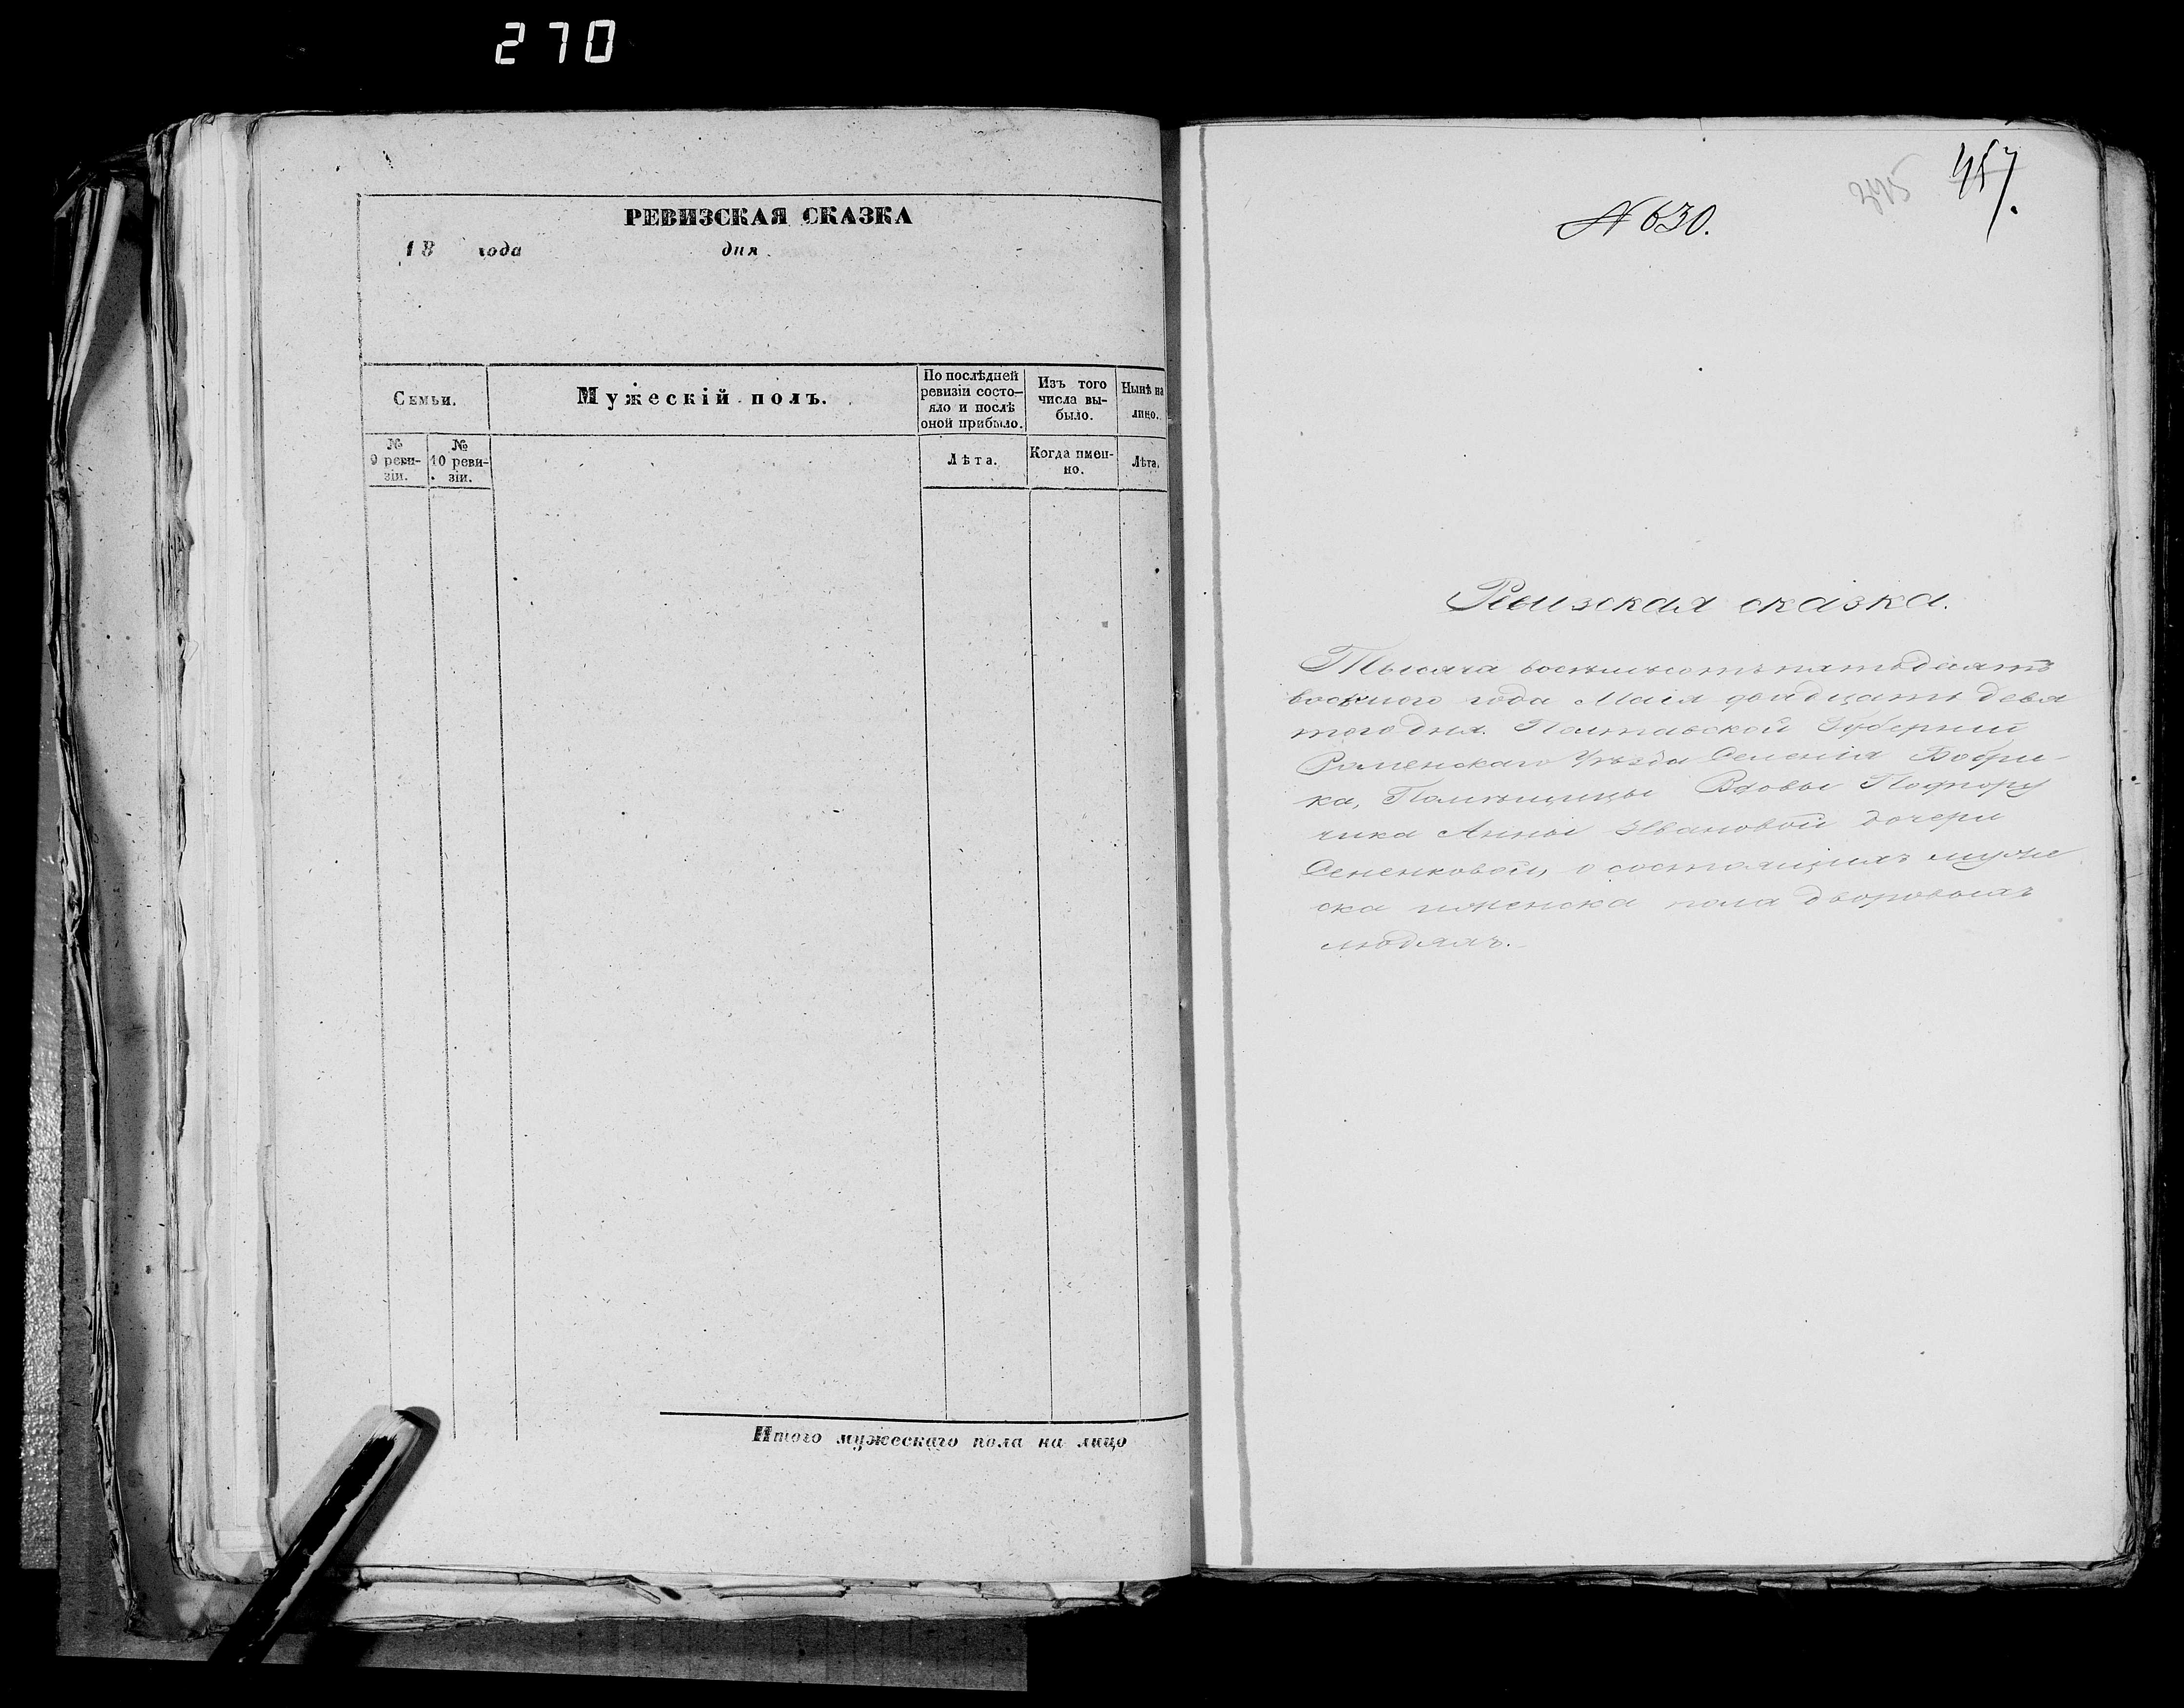 270
РЕВИЗСКАЯ СКАЗКА
18 года дня
Семьи.
Мужескій полъ.
По послѣдней ревизіи состо-
яло и послѣ
оной прибыло.
Изъ того
числа вы-
было.
Нынѣ на
лицо.
№
9 реви-
зіи.
№
10 реви-
зіи.
Лѣта.
Когда имен-
но.
Лѣта.
Итого мужескаго пола на лицо
245 457.
№ 630.
Ревизская сказка.
Тысяча восемьсотъ пятьдесятъ
восьмого года Маія двадцать девя
того дня. Полтавской Губерніи
Роменскаго Уѣзда Селенія Бобри-
ка, Помѣщицы Вдовы Подпору
чика Анны Ивановой дочери
Сененковой, о состоящихъ муже
ска и женска пола дворовыхъ
людяхъ.